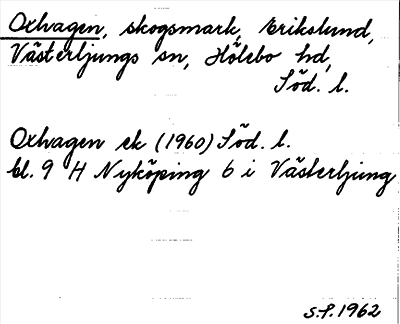 Oxhagen, skogsmark, Erikslund,
Västerljungs sn, Hölebo hd,
Söd. l.
Oxhagen ek (1960) Söd. l.
bl. 9 H Nyköping 6 i Västerljung
S.P. 1962